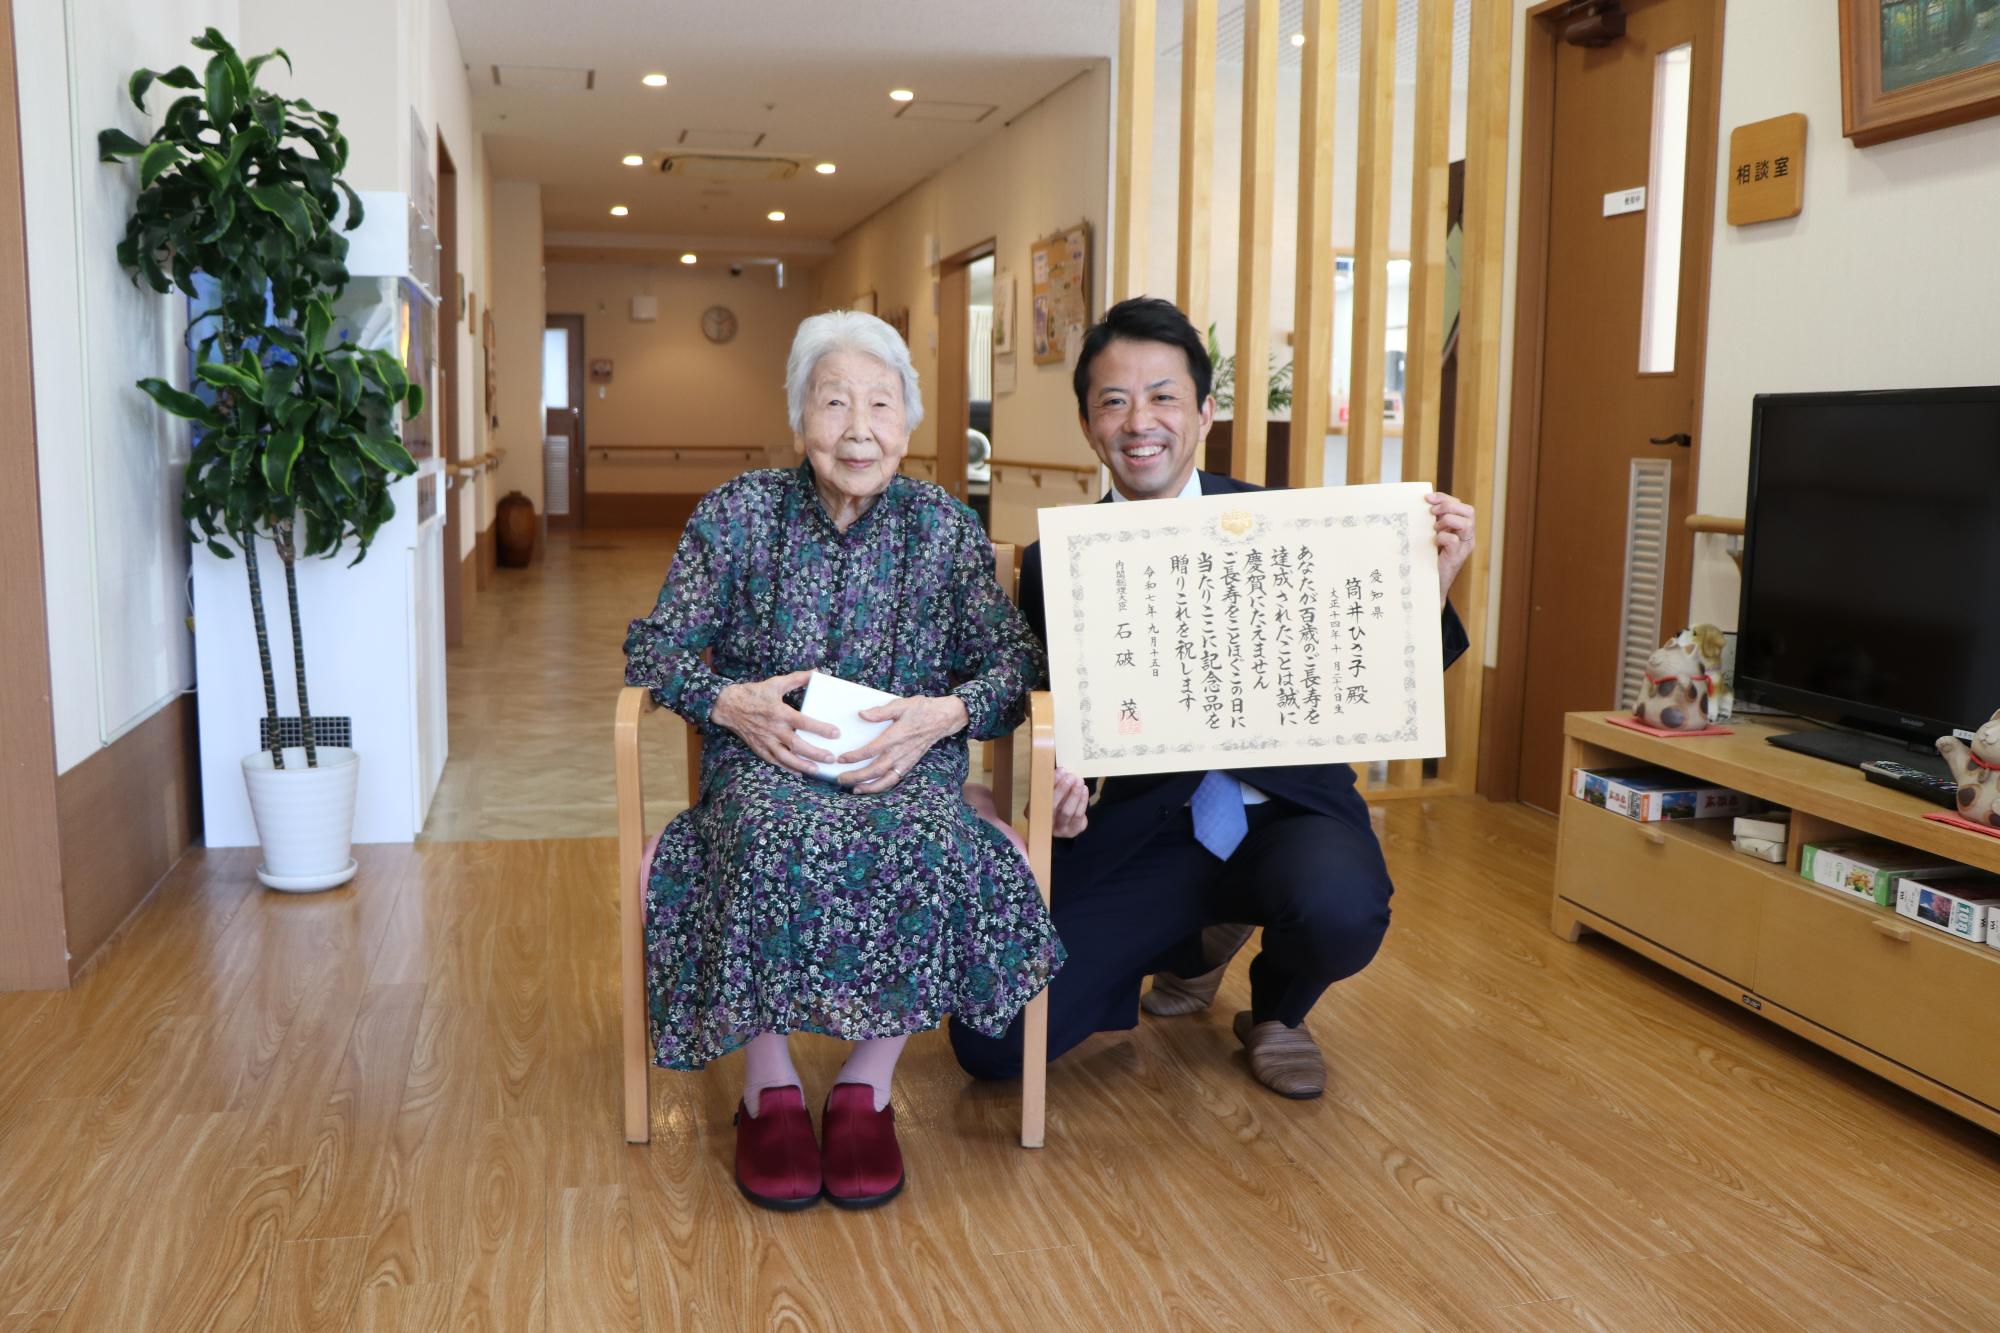 愛知県
筒井ひさ子殿
大正十四年十月二十八日生
あなたが百歳のご長寿を
達成されたことは誠に
慶賀にたえません
ご長寿をことほぐこの日に
当たりここに記念品を
贈りこれを祝します
令和七年九月十五日
内閣総理大臣 石破 茂
相談室
SHARP